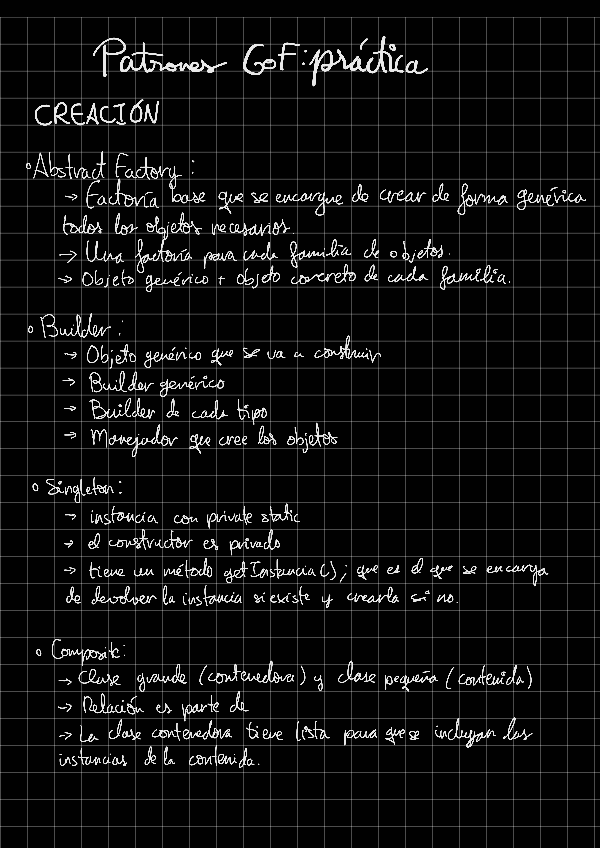 Patrones GoF: práctica
CREACIÓN
◦ Abstract Factory:
→ Factoría base que se encargue de crear de forma genérica
todos los objetos necesarios.
→ Una factoría para cada familia de objetos.
→ Objeto genérico + objeto concreto de cada familia.
◦ Builder:
→ Objeto genérico que se va a construir
→ Builder genérico
→ Builder de cada tipo
→ Manejador que cree los objetos
◦ Singleton:
→ instancia con private static
→ el constructor es privado
→ tiene un método getInstancia(); que es el que se encarga
de devolver la instancia si existe y crearla si no.
◦ Composite:
→ Clase grande (contenedora) y clase pequeña (contenida)
→ Relación es parte de
→ La clase contenedora tiene lista para que se incluyan las
instancias de la contenida.